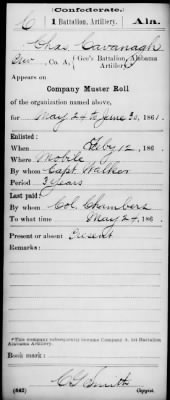 (Confederate.)
C 1 Battalion, Artillery. Ala.
Chas. Cavanagh
Co. A, Geo's Battalion, Alabama Artillery.*
Appears on
Company Muster Roll
of the organization named above,
for May 24 to June 30, 1861.
Enlisted:
When Feby 12, 186 .
Where Mobile
By whom Capt Walker
Period 3 years
Last paid:
By whom Col. Chambers
To what time May 24, 186 .
Present or absent Present
Remarks:
*This company subsequently became Company A, 1st Battalion
Alabama Artillery.
Book mark:
(642) C G Smith
Copyist.